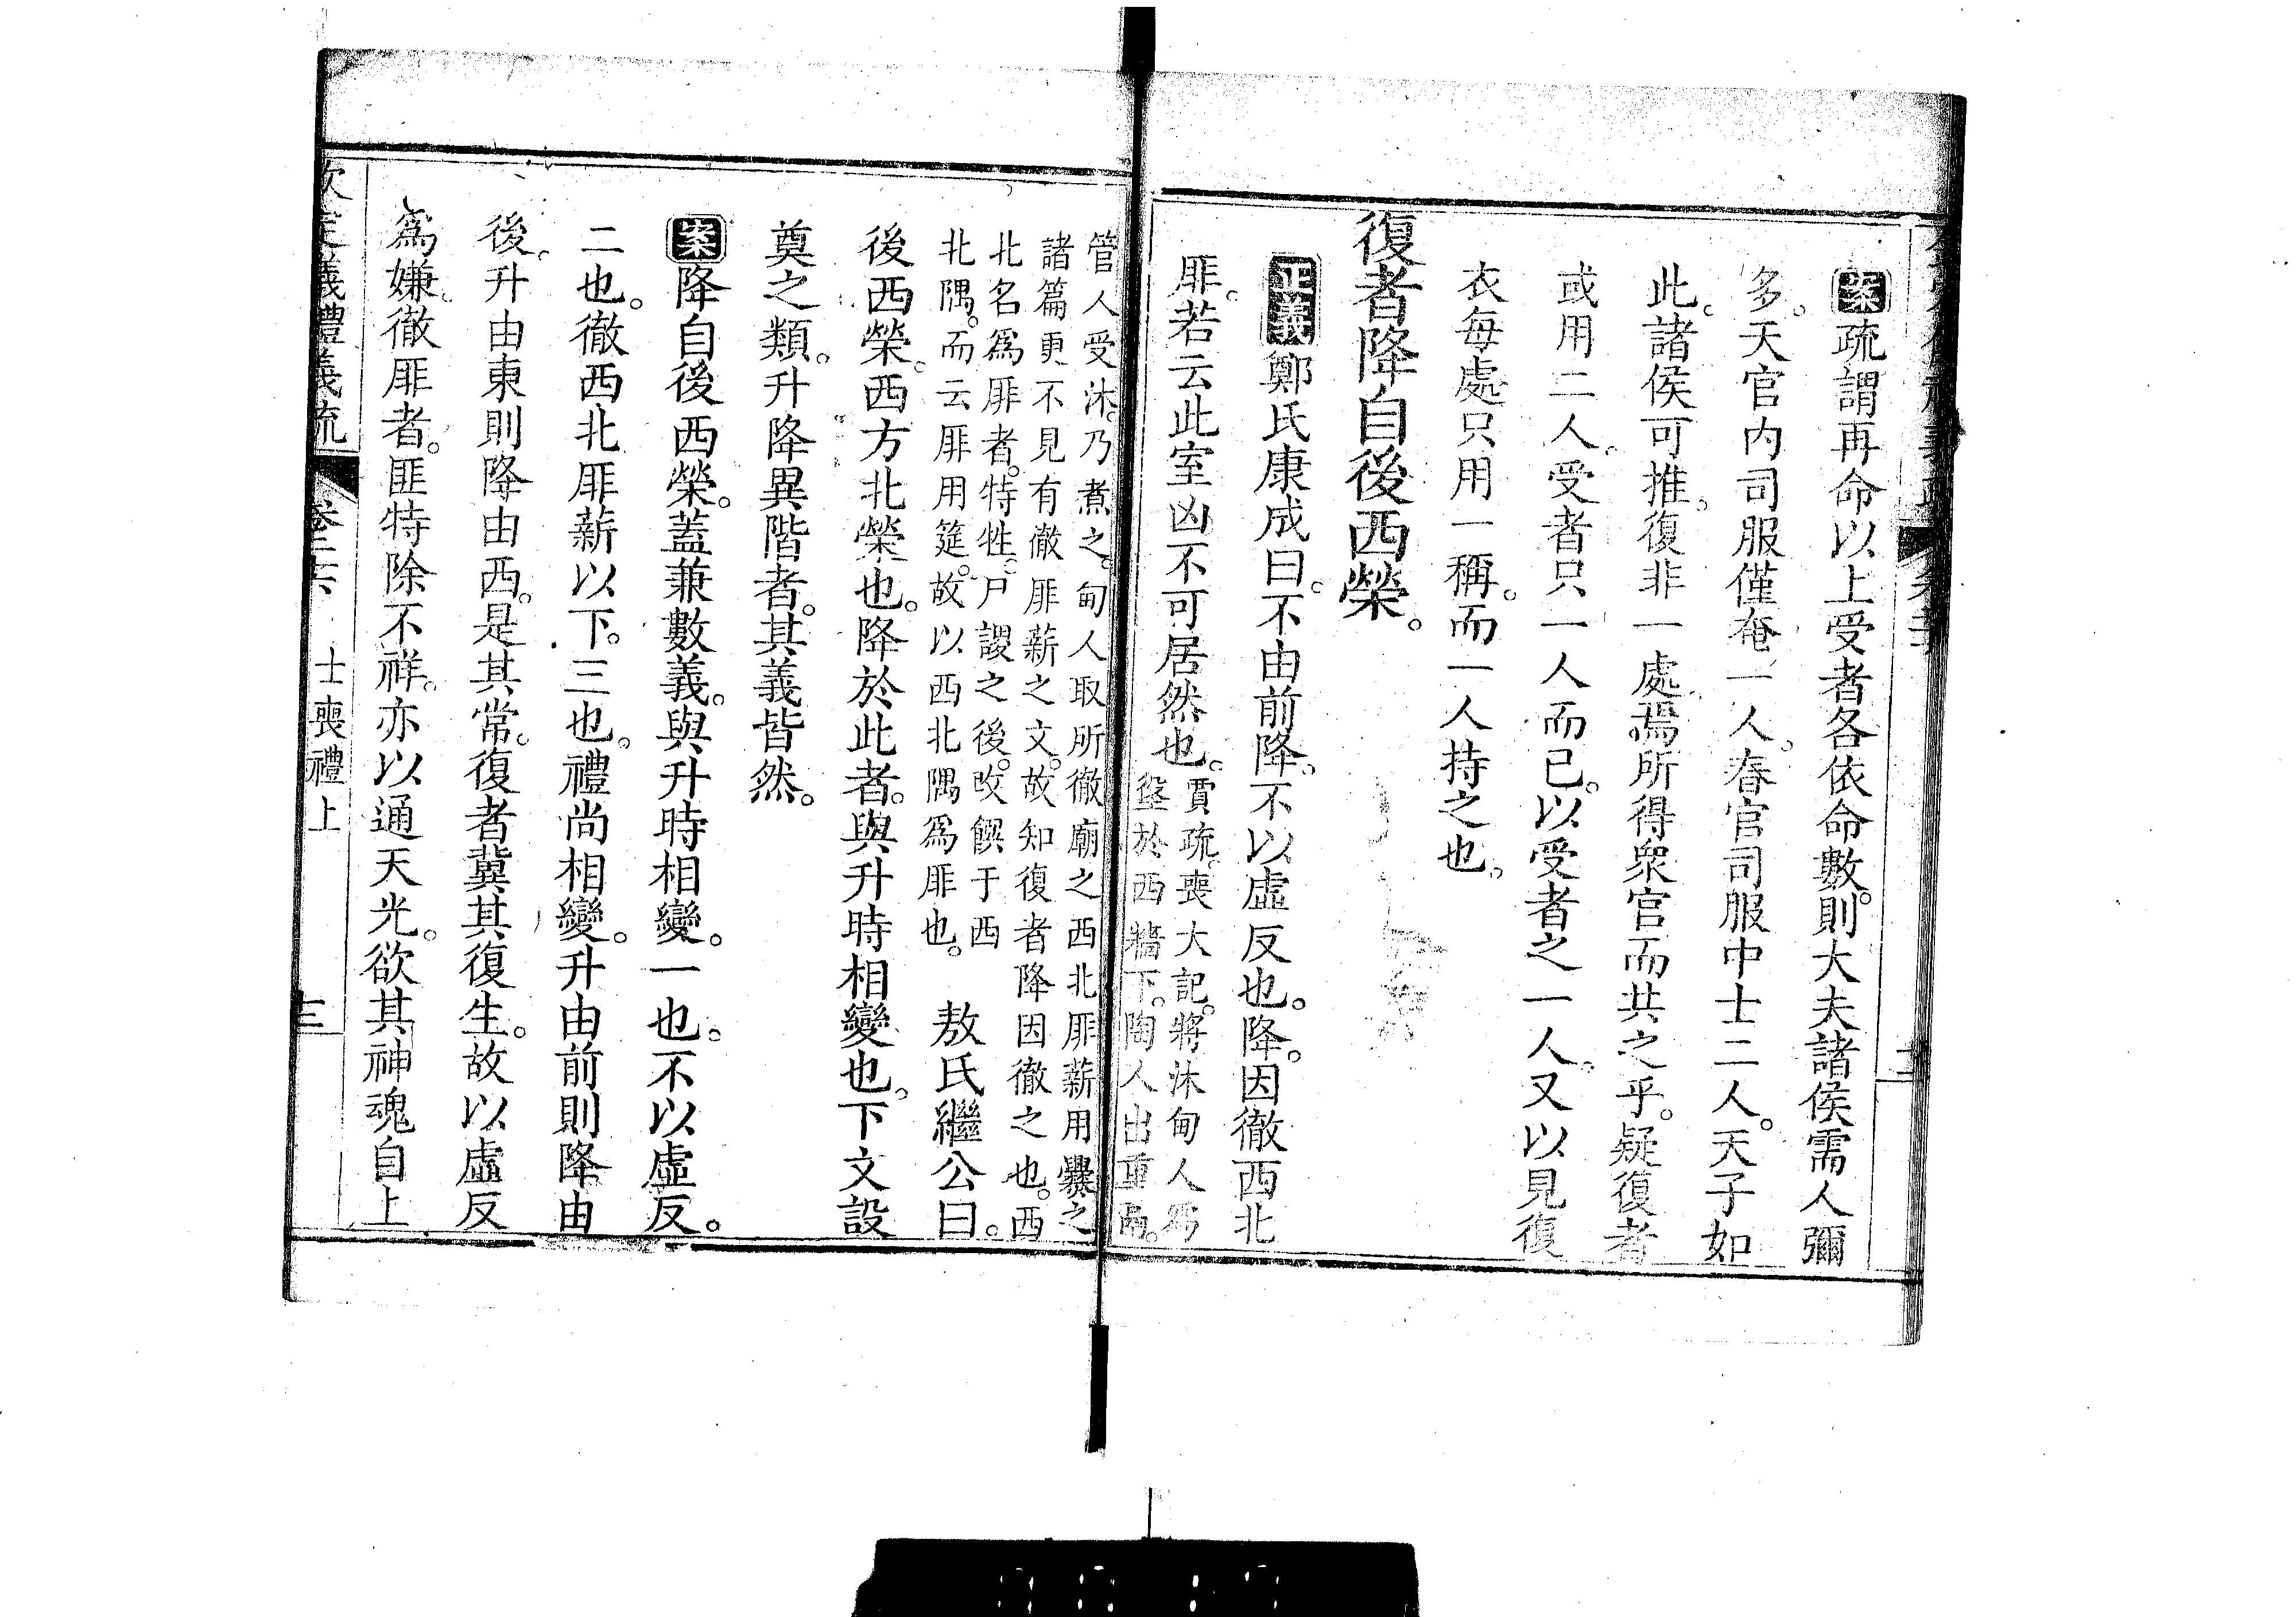 案疏謂再命以上受者各依命數。則大夫諸侯需人彌
多。天官內司服僅奄一人。春官司服中士二人。天子如
此。諸侯可推。復非一處。焉所得衆官而共之乎。疑復者
或用二人。受者只一人而已。以受者之一人。又以見復
衣每處只用一稱。而一人持之也。
復者降自後西榮。
正義鄭氏康成曰。不由前降。不以虛反也。降。因徹西北
厞。若云此室凶不可居然也。賈疏。喪大記。將沐甸人爲
垼於西牆下。陶人出重鬲。
管人受沐。乃煮之。甸人取所徹廟之西北厞薪用爨之
諸篇更不見有徹厞薪之文。故知復者降因徹之也。西
北名爲厞者。特牲。尸謖之後。改饌于西
北隅。而云厞用筵。故以西北隅爲厞也。 敖氏繼公曰。
後西榮。西方北榮也。降於此者。與升時相變也。下文設
奠之類。升降異階者。其義皆然。
案降自後西榮。蓋兼數義。與升時相變。一也。不以虛反。
二也。徹西北厞薪以下。三也。禮尚相變。升由前則降由
後。升由東則降由西。是其常。復者冀其復生。故以虛反
爲嫌。徹厞者。匪特除不祥。亦以通天光。欲其神魂自上
欽定儀禮義疏 卷二六 士喪禮上 十三